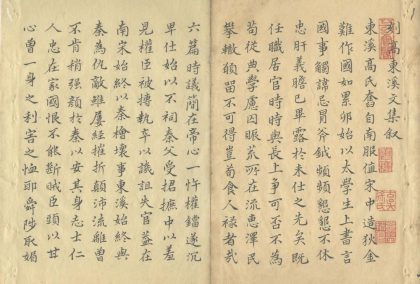 刻高東溪文集叙
東溪高氏奮自南服值宋中造狄金
難作國如累卵始以太學生上書言
國事觸諱忌冒斧鉞頻頻懇懇不休
忠肝義膽已畢露於未仕之先矣既
任職居官時時與長上爭可否不為
苟從典學慮囚賑荒所在流惠澤民
攀轍願留不可得豈苟食人祿者哉
六篇時議簡在帝心一忤權鐺遂沉
卑仕始以不祠秦父受捃摭中以羞
見權臣被執卒以詛失官蓋在
南宋始終以秦檜壞事東溪始終與
秦為仇敵雖屢經摧折顛沛流離曾
不肯稍強顏於秦以安其身志士仁
人忠在家國恨不能斷賊臣頭以甘
心曾一身之利害之恤耶舜陟取媚